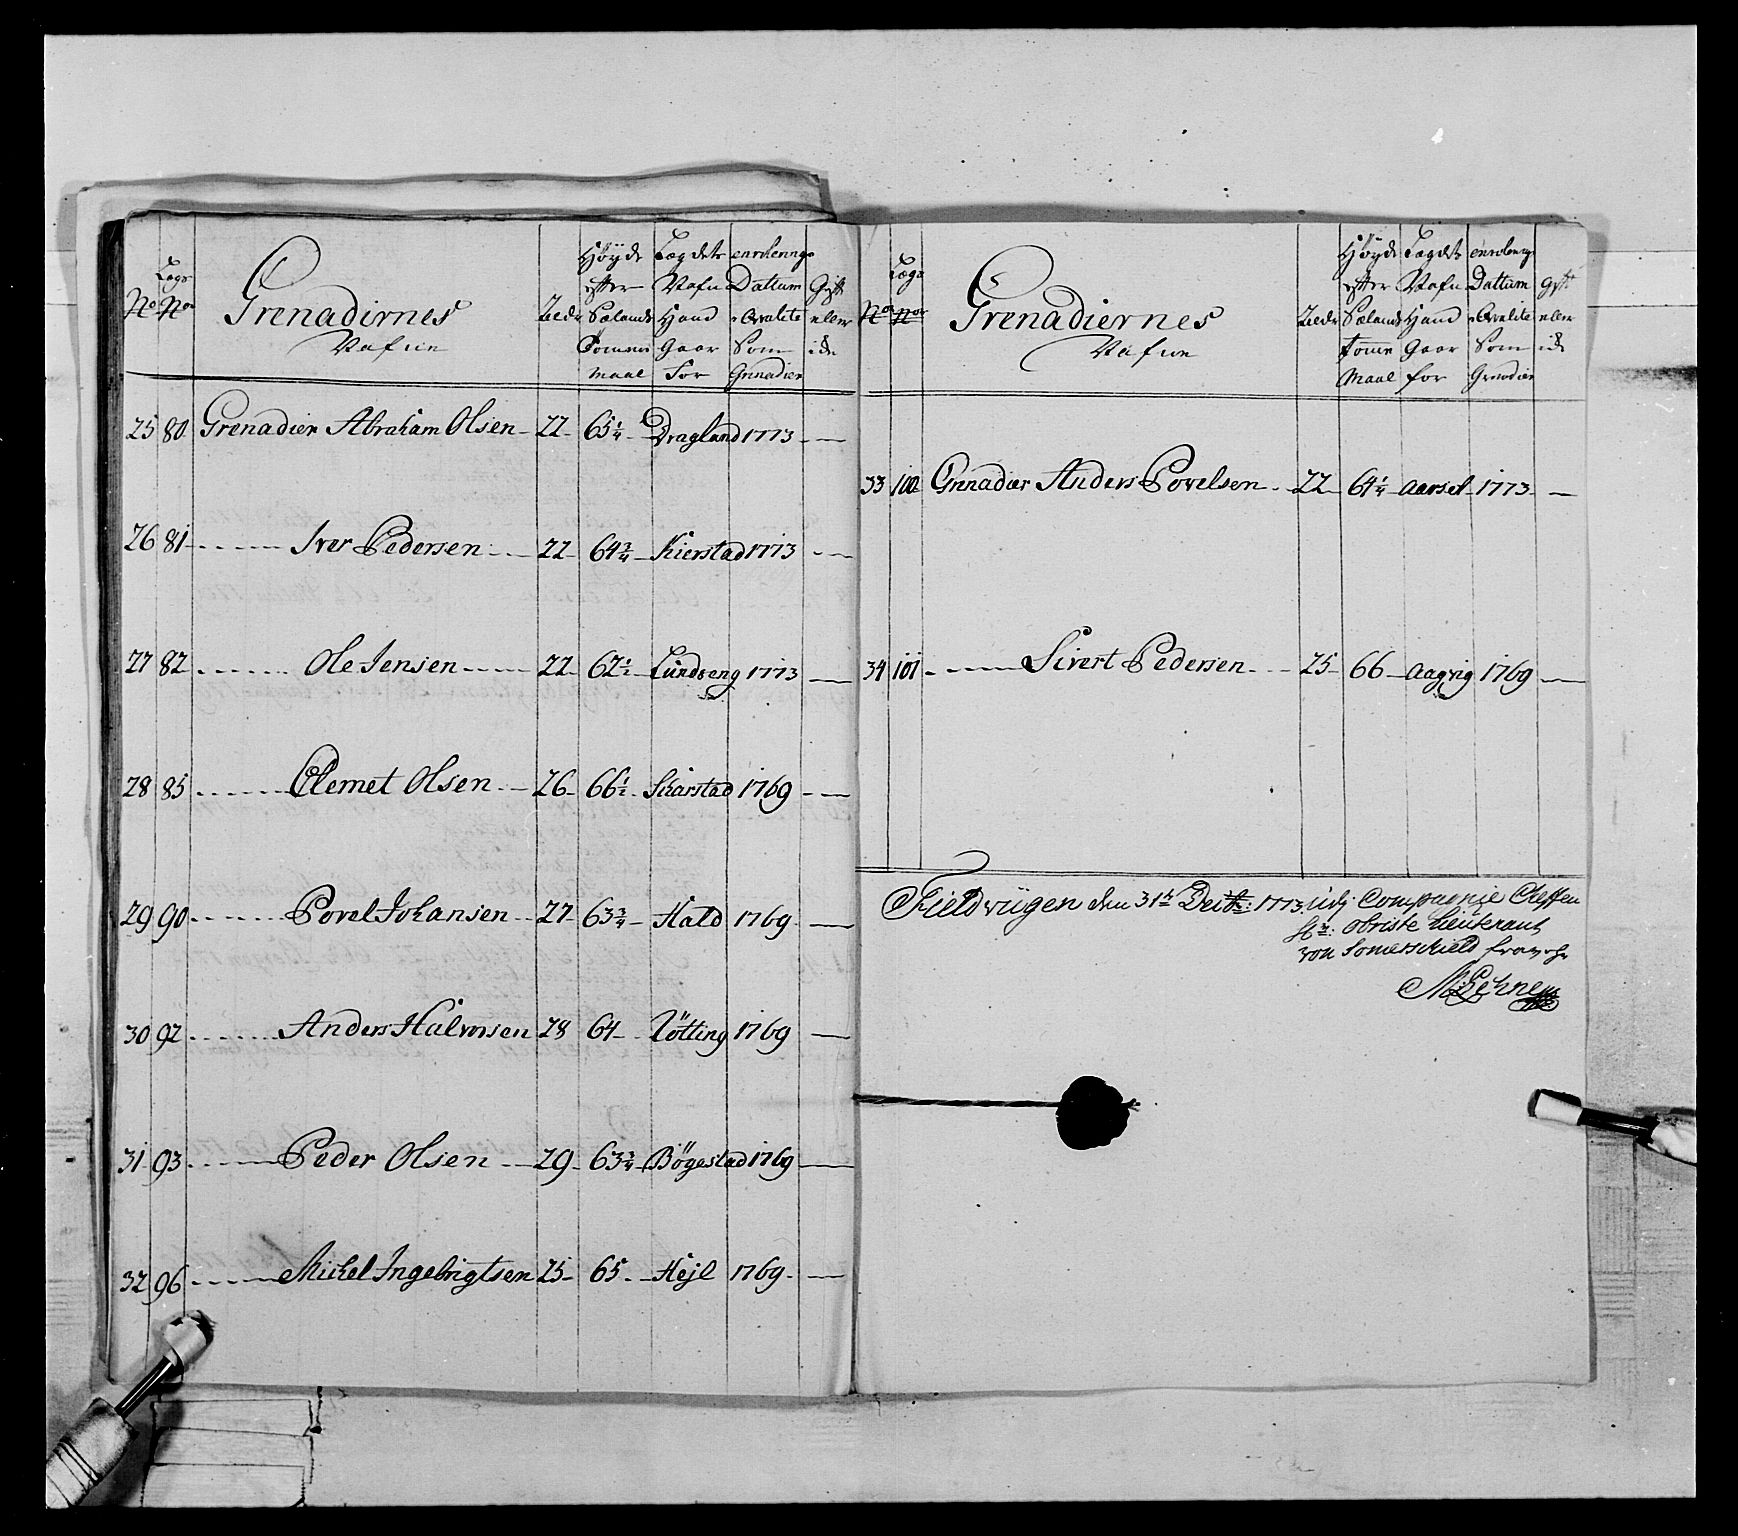 No
Lægs
No
Grenadirnes
Nafne
Alder
Høyde
efter
Sælands
Tommer
Maal
Lægdets
Nafn
Hand
Gaar
For
enrolerings
Dattum
Qvalite
Som
Grenadier
Gift
eller
ide
25 80 Grenadier Abraham Olsen 22 65 1/4 Dragland 1773
26 81 Iver Pedersen 22 64 3/4 Kierstad 1773
27 82 Ole Jensen 22 62 1/2 Lundseng 1773
28 85 Clemet Olsen 26 66 1/2 Skarstad 1769
29 90 Povel Johansen 27 63 3/4 Hald 1769
30 92 Anders Halvorsen 28 64 Røtting 1769
31 93 Peder Olsen 29 63 3/4 Bøgestad 1769
32 96 Mickel Ingebrigtsen 25 65 Hejl 1769
No
Lægs
Nor
Grenadiernes
Nafne
Alder
Høyde
efter
Sælands
Tomme
Maal
Lægdets
Nafn
Hand
Gaar
for
enrolerings
Dattum
Qvalite
Som
Grenadier
Gift
eller
ide
33 100 Grenadier Anders Povelsen 22 64 1/4 Aarset 1773
34 101 Sivert Pedersen 25 66 Aagvig 1769
Fieldvügen den 31te Decbr: 1773. udj Compagnie Cheffen
Hr: Obriste Lieutenant
von Somerschield